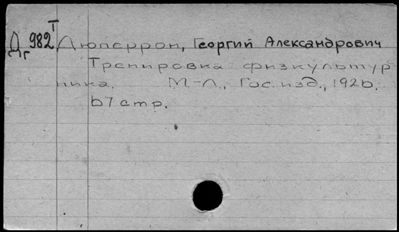 Дг 982 Т Дюперрон, Георгий Александрович
Тренировка физкультур
ника. М-Л., Гос. изд., 1926.
67 стр.